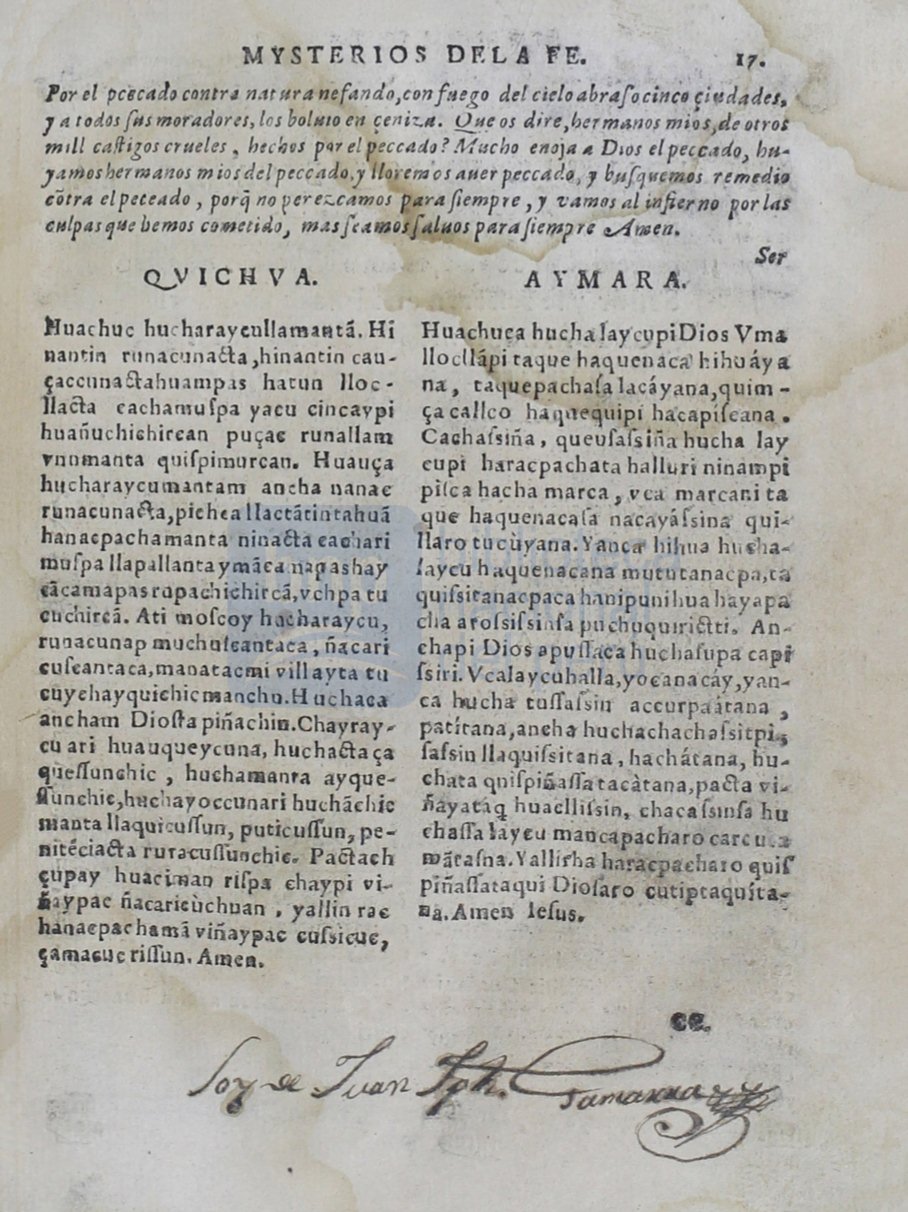 MYSTERIOS DELA FE. 17.
Por el pcecado contra natura nefando, con fuego del cielo abraſo cinco çiudades,
y a todos ſus moradores, los boluio en çeniza. Que os dire, hermanos mios, de otros
mill caſtigos crueles, hechos por el peccado? Mucho enoja a Dios el peccado, hu-
yamos hermanos mios del peccado, y lloremos auer peccado, y buſquemos remedio
cõtra el peteado, porq̃ no perezcamos para ſiempre, y vamos al infierno por las
culpas que hemos cometido, mas ſeamos ſaluos para ſiempre Amen.
Ser
QVICHVA.
Huachuc hucharaycullamantã. Hi
nantin runacunacta, hinantin cau-
çaccunactahuampas hatun lloc-
llacta cachamuſpa yacu cincaypi
huañuchichircan puçac runallam
vnumanta quiſpimurcan. Huauça
hucharaycumantam ancha nanac
runacunacta, pichca llactãtintahuã
hanacpachamanta ninacta cachari
muſpa llapallantaymãca napas hay
cãcamapas rupachichircã, vchpa tu
cuchircã. Ati moſcoy hucharaycu,
runacunap muchuſcantaca, ñacari
cuſcantaca, manatacmi villayta tu
cuy chay quichicmanchu. Huchaca
ancham Diosta piñachin. Chayray-
cu ari huauqueycuna, huchacta ça
queſſunchic, huchamanta ayque-
ſſunchic, huchayoccunari huchãchic
manta llaquicuſſun, puticuſſun, pe-
nitẽciacta ruracuſſunchic. Pactach
çupay huaciman riſpa chaypi vi-
ñaypac ñacaricùchuan, yallin rac
hanacpachamã viñaypac cuſsicuc,
çamacuc riſſun. Amen.
AYMARA.
Huachuca hucha laycupi Dios Vma
lloclláṕi taque haquenaca hihuáya
na, taquepachaſa lacáyana, quim-
ça callco haquequipi hacapiſcana.
Cachaſsiña, queuſaſsiña hucha lay
cupi haracpachata halluri ninampi
piſca hacha marca, vca marcani ta
que haquenacaſa nacayáſsina qui-
llaro tucùyana. Yanca hihua hucha-
laycu haquenacana mututanacpa, ca
quiſsitanacpaca hanipunihua hayapa
cha aroſsiſsinſa puchuquirictti. An-
chapi Dios apuſſaca huchaſupa capi
ſsiri. Vcalaycuhalla, yocanacáy, yan-
ca hucha tuſſaſsin accurpaátana,
patítana, ancha huchachachaſsitpi,
ſaſsin llaquiſsitana, hachátana, hu-
chata quiſpiñaſſatacàtana, pacta vi-
ñayataq̃ huaclliſsin, chacaſsinſa hu
chaſſa laycu mancapacharo carcu
mãtaſna. Yallirha haracpacharo quiſ
piñaſſataqui Dioſaro cutiptaquíta-
na. Amen Ieſus.
CC.
Soy de Juan Jph. Gamarra